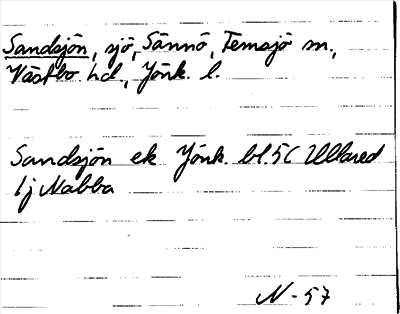 Sandsjön, sjö, Sännö, Femsjö sn.,
Västbo hd, Jönk. l.
Sandsjön ek Jönk. bl.5C Ullared
1j Nabba
N-57